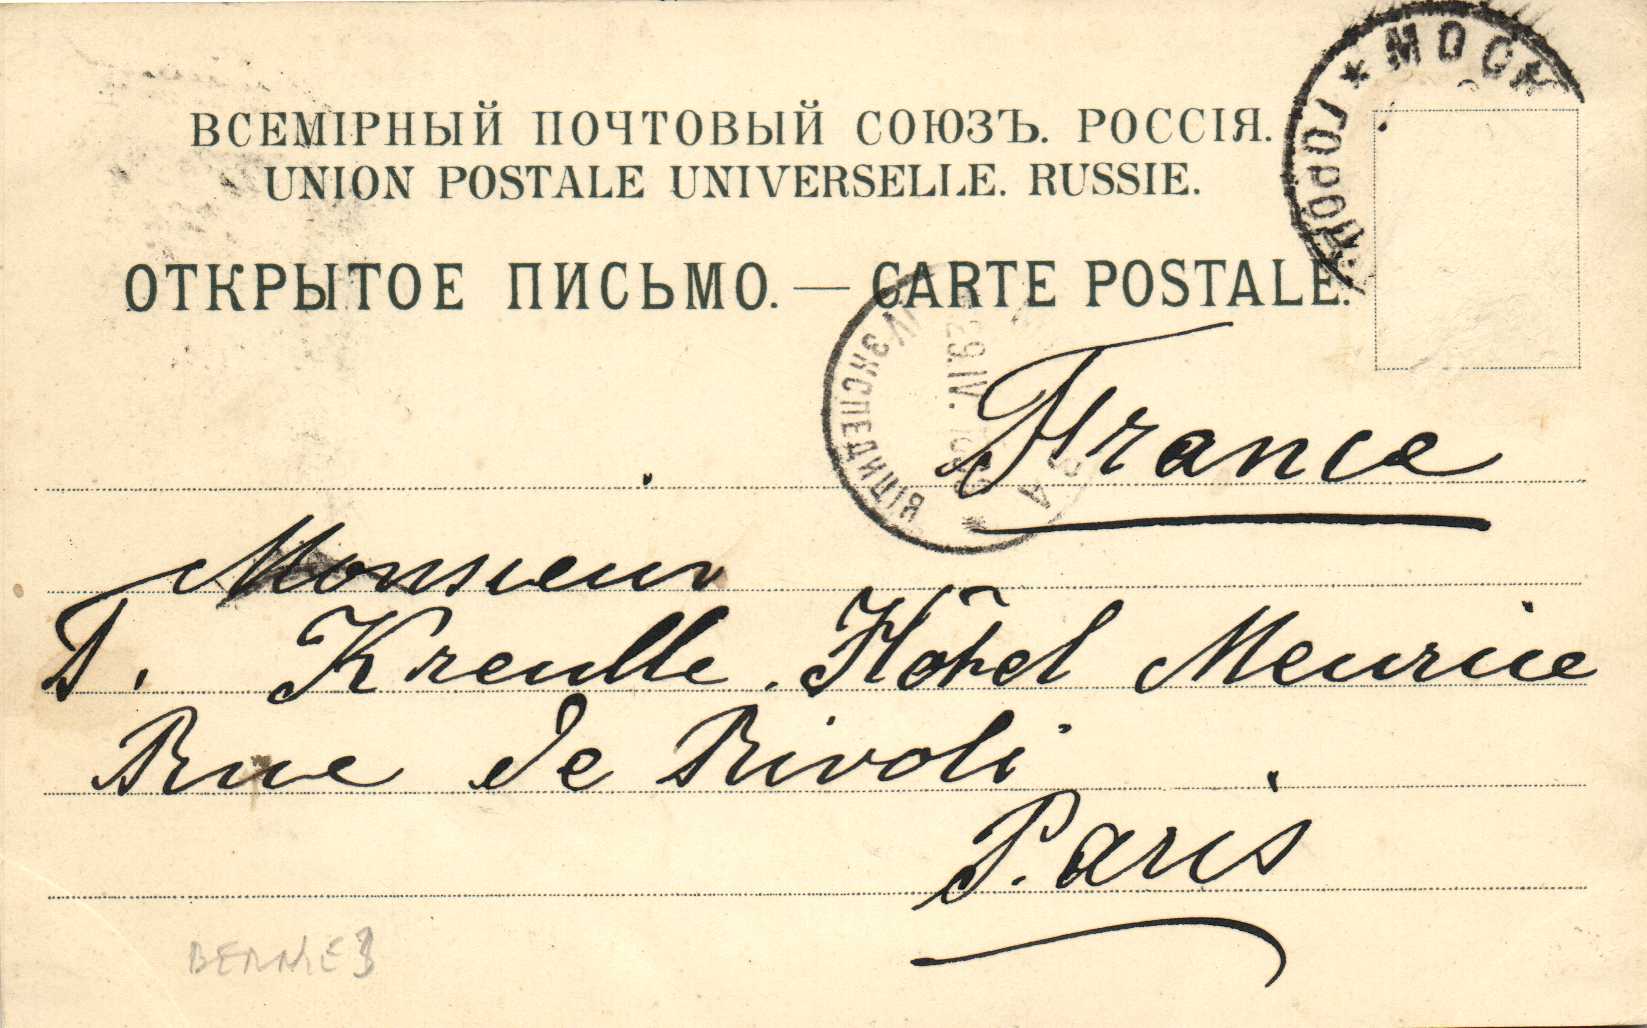 ВСЕМІРНЫЙ ПОЧТОВЫЙ СОЮЗЪ. РОССІЯ.
UNION POSTALE UNIVERSELLE. RUSSIE.
ОТКРЫТОЕ ПИСЬМО. — CARTE POSTALE.
МОСК
ГОРОД
ЭКСПЕДИЦІЯ
29.IV.
France
Monsieur
Kreulle. Hôtel Meurice
Rue de Rivoli
Paris